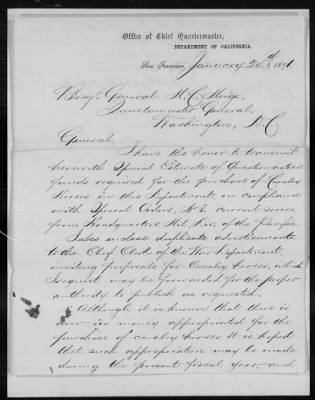 Office of Chief Quartermaster,
DEPARTMENT OF CALIFORNIA.
San Francisco, January 20th 1871
Brig. General M. C. Meigs
Quartermaster General,
Washington, D.C.
General,
I have the honor to transmit
herewith Special Estimate of Quartermaster's
funds required for the purchase of Cavalry
Horses in this Department, in compliance
with Special Orders, No. current series
from Headquarters Mil. Div. of the Pacific.
I also inclose duplicate advertisements
to the Chief Clerk of the War Department,
inviting proposals for Cavalry horses, which
I request may be forwarded for the proper
authority to publish as requested.
Although it is known that there is
now no money appropriated for the
purchase of cavalry horses it is hoped
that such appropriation may be made
during the present fiscal year, and